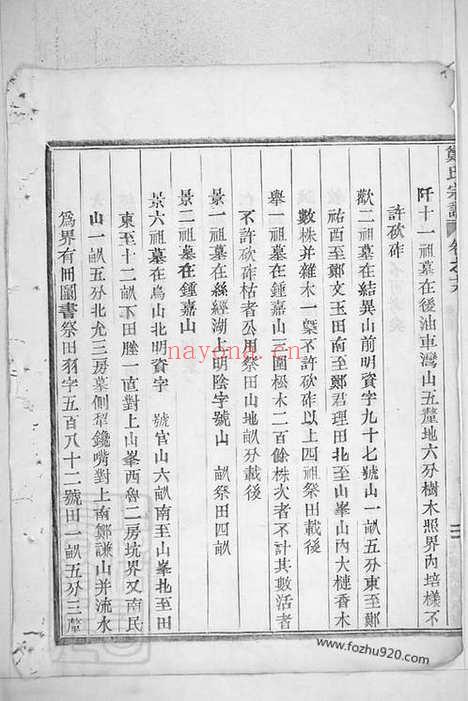 鄭氏宗譜 卷之六
阡十一祖墓在後油車灣山五釐地六分樹木照界內培樣不
許砍砟
歡二祖墓在結異山前明資字九十七號山一畝五分東至鄭
祐西至鄭文玉田南至鄭君理田北至山峯山內大槤香木
數株并雜木一槩不許砍砟以上四祖祭田載後
舉一祖墓在鍾嘉山三圍松木二百餘株次者不計其數活者
不許砍砟枯者公用祭田山地畝分載後
景一祖墓在絲經湖上明陰字號山 畝祭田四畝
景二祖墓在鍾嘉山
景六祖墓在烏山北明資字 號官山六畝南至山峯北至田
東至十二畝下田塍一直對上山峯西魯二房坑界又南民
山一畝五分北尤三房墓側犁鑱嘴對上南鄭謙山并流水
爲界有冊圖書祭田羽字五百八十二號田一畝五分三釐
nayona.cn
www.fozhu920.com